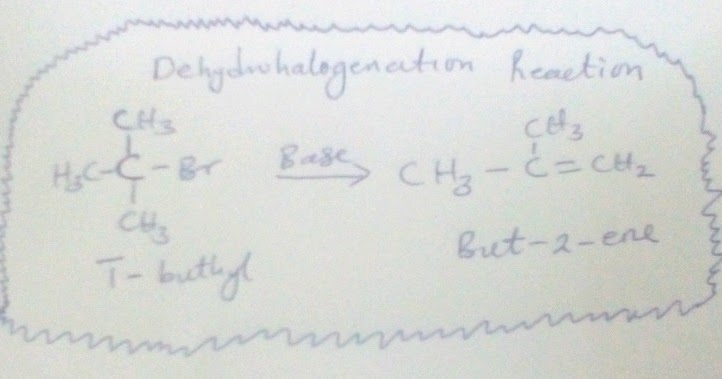 Dehydrohalogenation Reaction
CH3
H3C-C-Br
CH3
Base
CH3
CH3-C=CH2
T-buthyl
But-2-ene